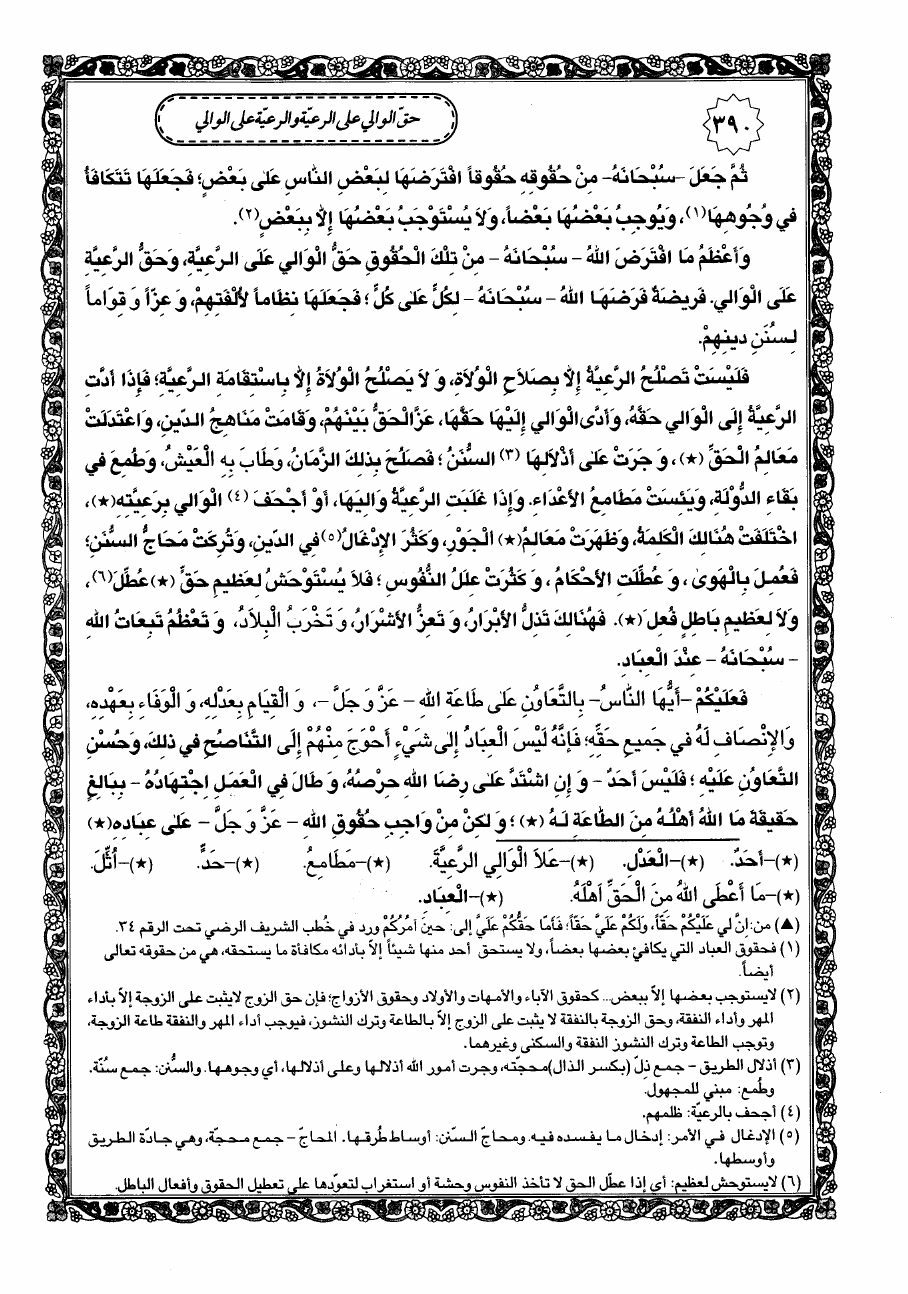 ٣٩٠
حقّ الوالي على الرعيّة والرعيّة على الوالي
ثُمَّ جَعَلَ -سُبْحَانَهُ- مِنْ حُقُوقِهِ حُقُوقاً افْتَرَضَهَا لِبَعْضِ النَّاسِ عَلى بَعْضٍ؛ فَجَعَلَهَا تَتَكَافَأُ
في وُجُوهِهَا(١)، وَيُوجِبُ بَعْضُهَا بَعْضاً، وَلاَ يُسْتَوْجَبُ بَعْضُهَا إِلاَّ بِبَعْضٍ(٢).
وَأَعْظَمُ مَا افْتَرَضَ اللهُ - سُبْحَانَهُ - مِنْ تِلْكَ الْحُقُوقِ حَقُّ الْوَالي عَلَى الرَّعِيَّةِ، وَحَقُّ الرَّعِيَّةِ
عَلَى الْوَالي. فَرِيضَةٌ فَرَضَهَا اللهُ - سُبْحَانَهُ - لِكُلٍّ عَلى كُلٍّ؛ فَجَعَلَهَا نِظَاماً لأُلْفَتِهِمْ، وَ عِزّاً وَ قِوَاماً
لِسُنَنِ دِينِهِمْ.
فَلَيْسَتْ تَصْلُحُ الرَّعِيَّةُ إِلاَّ بِصَلاَحِ الْوُلاَةِ، وَ لاَ يَصْلُحُ الْوُلاَةُ إِلاَّ بِاسْتِقَامَةِ الرَّعِيَّةِ؛ فَإِذَا أَدَّتِ
الرَّعِيَّةُ إِلَى الْوَالي حَقَّهُ، وَأَدَّى الْوَالي إِلَيْهَا حَقَّهَا، عَزَّ الْحَقُّ بَيْنَهُمْ، وَقَامَتْ مَنَاهِجُ الدّينِ، وَاعْتَدَلَتْ
مَعَالِمُ الْحَقِّ (★)، وَ جَرَتْ عَلى أَذْلاَلِهَا (٣) السُّنَنُ؛ فَصَلُحَ بِذلِكَ الزَّمَانُ، وَطَابَ بِهِ الْعَيْشُ، وَطُمِعَ في
بَقَاءِ الدَّوْلَةِ، وَيَئِسَتْ مَطَامِعُ الأَعْدَاءِ. وَإِذَا غَلَبَتِ الرَّعِيَّةُ وَالِيَهَا، أَوْ أَجْحَفَ (٤) الْوَالي بِرَعِيَّتِهِ(★)،
اخْتَلَفَتْ هُنَالِكَ الْكَلِمَةُ، وَظَهَرَتْ مَعَالِمُ(★) الْجَوْرِ، وَكَثُرَ الإِدْغَالُ(٥)في الدّينِ، وَتُرِكَتْ مَحَاجُّ السُّنَنِ؛
فَعُمِلَ بِالْهَوى، وَ عُطِّلَتِ الأَحْكَامُ، وَ كَثُرَتْ عِلَلُ النُّفُوسِ؛ فَلاَ يُسْتَوْحَشُ لِعَظيمِ حَقٍّ (★)عُطِّلَ(٦)،
وَلاَ لِعَظيمِ بَاطِلٍ فُعِلَ (★). فَهُنَالِكَ تَذِلُّ الأَبْرَارُ، وَ تَعِزُّ الأَشْرَارُ، وَ تَخْرَبُ الْبِلاَدُ، وَ تَعْظُمُ تَبِعَاتُ اللهِ
- سُبْحَانَهُ - عِنْدَ الْعِبَادِ.
فَعَلَيْكُمْ -أَيُّهَا النَّاسُ- بِالتَّعَاوُنِ عَلى طَاعَةِ اللهِ - عَزَّ وَ جَلَّ -، وَ الْقِيَامِ بِعَدْلِهِ، وَ الْوَفَاءِ بِعَهْدِهِ،
وَالإِنْصَافِ لَهُ في جَميعِ حَقِّهِ؛ فَإِنَّهُ لَيْسَ الْعِبَادُ إِلى شَيْءٍ أَحْوَجَ مِنْهُمْ إِلَى التَّنَاصُحِ في ذلِكَ، وَحُسْنِ
التَّعَاوُنِ عَلَيْهِ؛ فَلَيْسَ أَحَدٌ - وَ إِنِ اشْتَدَّ عَلى رِضَا اللهِ حِرْصُهُ، وَ طَالَ فِي الْعَمَلِ اجْتِهَادُهُ - بِبَالِغٍ
حَقيقَةَ مَا اللهُ أَهْلُهُ مِنَ الطَّاعَةِ لَهُ (★)؛ وَ لكِنْ مِنْ وَاجِبِ حُقُوقِ اللهِ - عَزَّ وَ جَلَّ - عَلى عِبَادِهِ(★)
(★)-أَحَدٌ. (★)-الْعَدْلِ. (★)-عَلاَ الْوَالِي الرَّعِيَّةَ. (★)-مَطَامِعُ. (★)-حَدٍّ. (★)-أُثِّلَ.
(★)-مَا أَعْطَى اللهُ مِنَ الْحَقِّ أَهْلَهُ. (★)-الْعِبَادِ.
(▲) من: إِنَّ لي عَلَيْكُمْ حَقّاً، وَلَكُمْ عَلَيَّ حَقاً؛ فَأَمّا حَقُّكُمْ عَلَيَّ إلى: حينَ آمُرُكُمْ ورد في خُطب الشريف الرضي تحت الرقم ٣٤.
(١) فحقوق العباد التي يكافئ بعضها بعضاً، ولا يستحق أحد منها شيئاً إلاّ بأدائه مكافأة ما يستحقه، هي من حقوقه تعالى
أيضاً.
(٢) لايستوجب بعضها إلاّ ببعض... كحقوق الآباء والأمهات والأولاد وحقوق الأزواج؛ فإن حق الزوج لايثبت على الزوجة إلاّ بأداء
المهر وأداء النفقة، وحق الزوجة بالنفقة لا يثبت على الزوج إلاّ بالطاعة وترك النشوز، فيوجب أداء المهر والنفقة طاعة الزوجة،
وتوجب الطاعة وترك النشوز النفقة والسكنى وغيرهما.
(٣) أذلال الطريق - جمع ذِلّ (بكسر الذال)محجّته، وجرت أمور الله أذلالها وعلى أذلالها، أي وجوهها. والسُّنن: جمع سُنّة.
وطُمع: مبني للمجهول.
(٤) أجحف بالرعيّة: ظلمهم.
(٥) الإدغال في الأمر: إدخال ما يفسده فيه. ومحاجّ السّنن: أوساط طُرقها. المحاجّ - جمع محجة، وهي جادّة الطريق
وأوسطها.
(٦) لايستوحش لعظيم: أي إذا عطّل الحق لا تأخذ النفوس وحشة أو استغراب لتعوّدها على تعطيل الحقوق وأفعال الباطل.